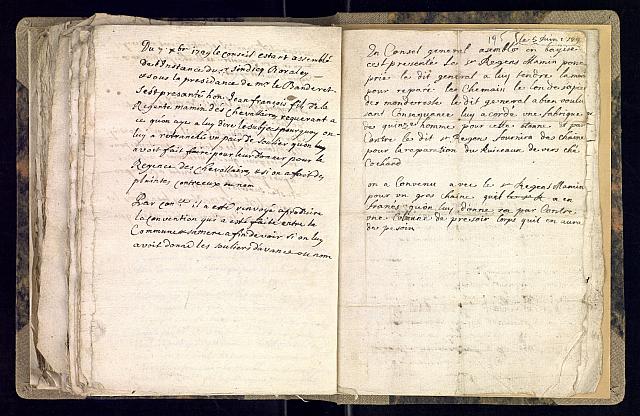 Du 7 xbr 1749 le conseil estant assemblé
de l'Instance du Sr Sindicq Boraley
et sous la presidance de mr le Banderet
sest presanté hon. Jean françois fils de la
Regente mamin des Chevallaire, requerant a
ce qu'on aye a luy dire le subjec pourquoy on
luy a retranché un pair de soulier qu'on luy
avoit fait faire pour leur donner pour la
Regence des Chevallaires, et si on a fait des
plaintes contre eux ou non
Par conlt il a esté renvoyé a produire
la convention qui a esté faite entre la
Commune et sa mere afin de voir si on luy
avoit donné les souliers d'avance ou non
195 le 5 Juin
En Consel general asemblé en
cest presentée Le sr Regens Mamin pour
prié le dit general a luy tendre la main
pour reparé les Chemain le lon de sa
des monderesse le dit general a bien voulu
sant Consequance luy acordé une fabrique
de quinze homme pour elle et par
Contre le dit sr Regens fournira des chaine
pour la reparation du Ruiceaux de vers ché
Cochard
on a Convenu avec le sr Regens Mamin
pour un gros chaine quel a en
franés qu'on luy donne par Contre
une Colonne de presoir lorps quil en aura
des besoin